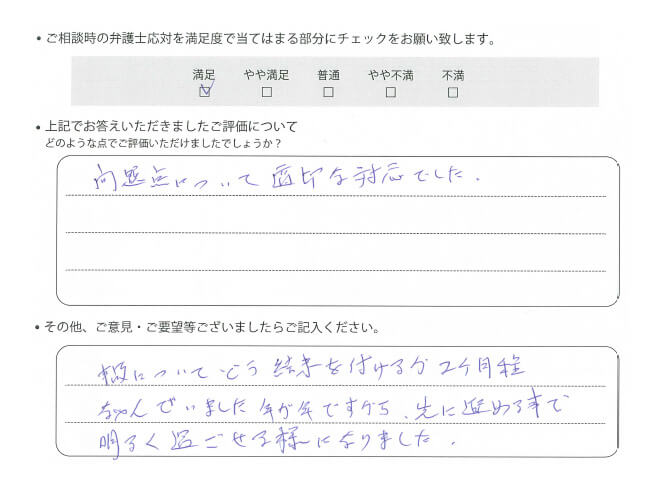 ・ご相談時の弁護士応対を満足度で当てはまる部分にチェックをお願い致します。
満足 やや満足 普通 やや不満 不満
・上記でお答えいただきましたご評価について
どのような点でご評価いただけましたでしょうか？
問題点について適切な対応でした.
・その他、ご意見・ご要望等ございましたらご記入ください。
についてどう結末を付けるか 2ケ月程
なやんでいました 年が年ですから、先に進める事で
明るく過ごせる様になりました.